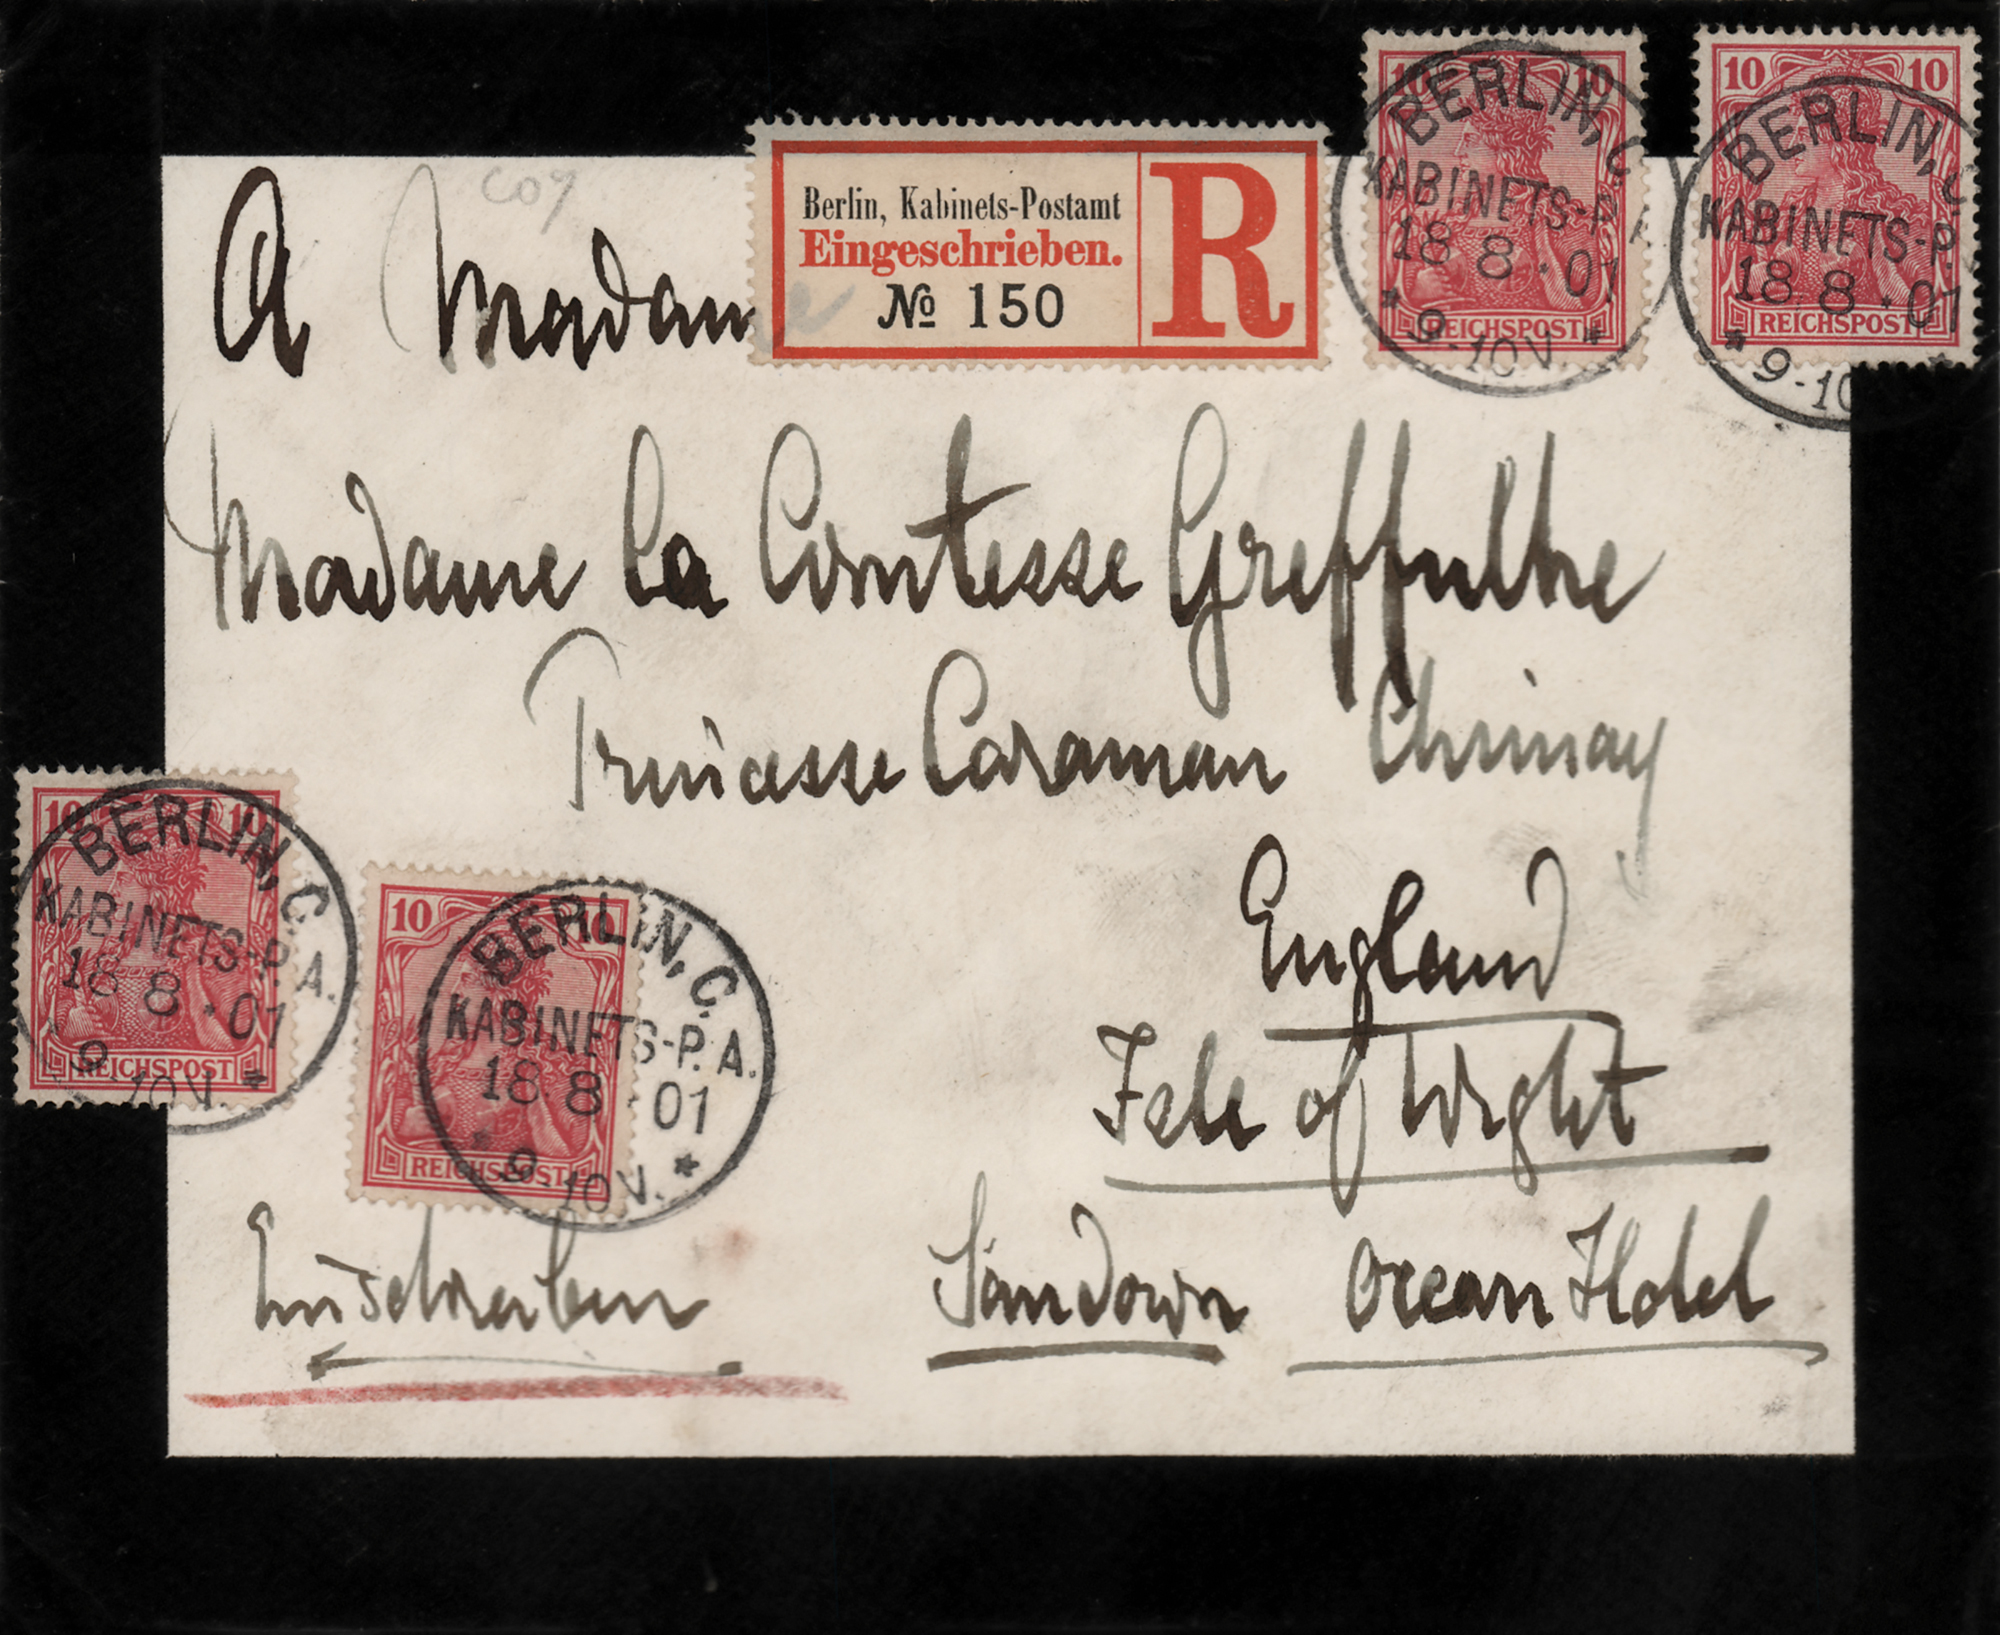 10 10
BERLIN, C.
KABINETS-P.
18 8 · 01
REICHSPOST
* 9-10V. *
10 10
BERLIN, C.
KABINETS-P.
18 8 · 01
REICHSPOST
* 9-10 *
Berlin, Kabinets-Postamt
Eingeschrieben.
№ 150
R
A Madame
Madame La Comtesse Greffulhe
Princesse Caraman Chimay
England
Isle of Wight
Sandown Ocean Hotel
Einschreiben
10 10
BERLIN, C.
KABINETS-P. A.
18 8 · 01
REICHSPOST
9-10V. *
10 10
BERLIN, C.
KABINETS-P. A.
18 8 · 01
REICHSPOST
* 9-10V. *